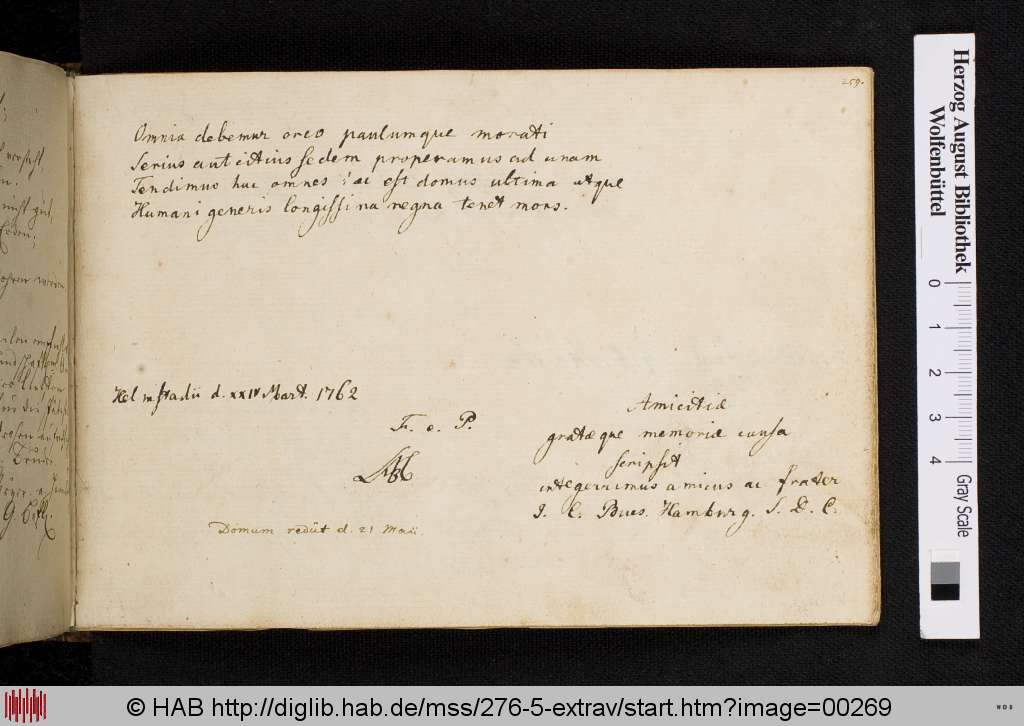 259.
Omnia debemur orco paulumque morati
Serius aut citius sedem properamus ad unam
Tendimus huc omnes ! ac est domus ultima atque
Humani generis longissima regna tenet mors.
Helmstadii d. XXIV Mart. 1762
F. e. P.
Amicitiæ
gratæque memoriæ causa
scripsit
integerrimus amicus ac frater
J. C. Bues. Hamburg. S. D. C.
Domum rediit d. 21 Maii.
Herzog August Bibliothek
Wolfenbüttel
0 1 2 3 4 Gray Scale
© HAB http://diglib.hab.de/mss/276-5-extrav/start.htm?image=00269
WDB